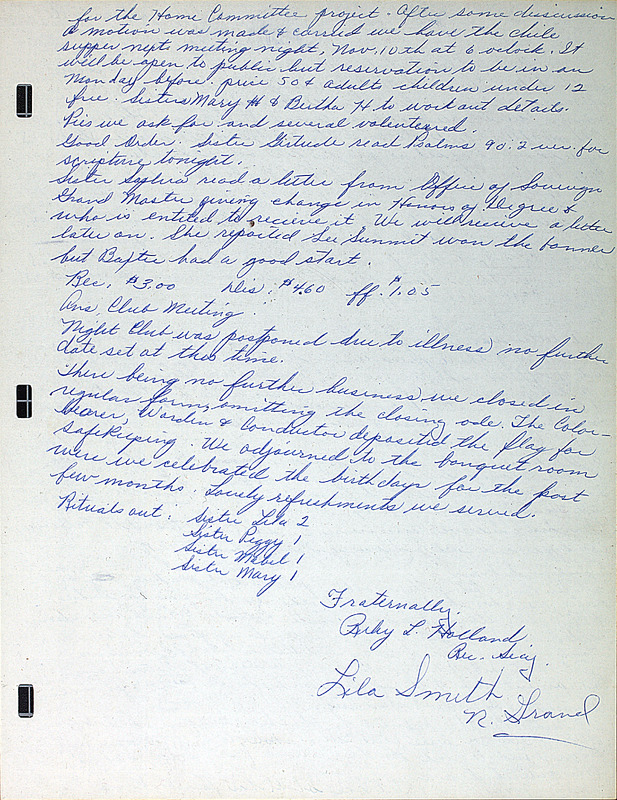 for the Home Committee project. After some discussion
a motion was made & carried we have the chile
supper next meeting night, Nov. 10th at 6 oclock. It
will be open to public but reservation to be in on
Monday before. price 50¢ adults children under 12
free. Sisters Mary H & Burtha H to work out details.
Pies we ask for and several volenteered.
Good Order. Sister Girtrude read Psalms 90:2 ver. for
scripture tonight.
Sister Sophia read a letter from Office of Soverign
Grand Master giving change in Honors of Degree &
who is entitled to receive it. We will receive a letter
later on. She reported Lee Summit won the banner
but Baptie had a good start.
Rec. $3.00 Dis. $4.60 off. $1.05
Ans. Club Meeting.
Night Club was postponed due to illness no further
date set at this time.
There being no further business we closed in
regular form, omitting the closing ode. The Color-
Bearer, Warden & Conductor deposited the flag for
safekeeping. We adjourned to the banquet room
were we celebrated the birthdays for the past
few months. Lovely refreshments we served.
Rituals out: Sister Lila 2
Sister Peggy 1
Sister Mabel 1
Sister Mary 1
Fraternally,
L. Holland
Rec. Secy.
Lila Smith
N. Grand